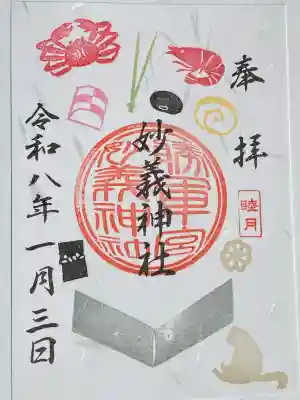 奉拝
睦月
勝軍宮
妙義神社
妙義神社
令和八年一月三日